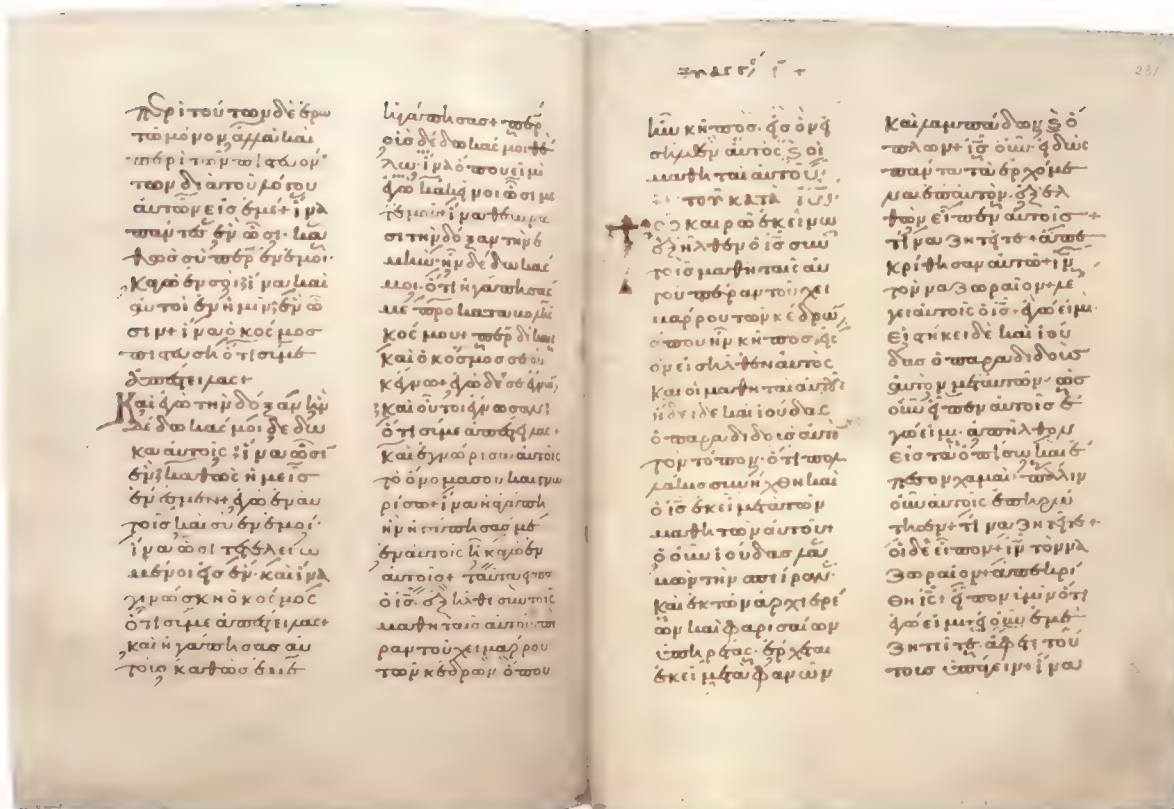 περὶ τούτων δὲ ἐρω
τῶ μόνον ἀλλὰ καὶ
περὶ τῶν πιστευόν
των διὰ τοῦ λόγου
αὐτῶν εἰς ἐμέ + ἵνα
πάντες ἓν ὦσι· κα
θὼς σὺ περ ἐν ἐμοὶ·
κἀγὼ ἐν σοὶ ἵνα καὶ
αὐτοὶ ἐν ἡμῖν ἓν ὦ
σιν + ἵνα ὁ κόσμος
πιστεύσῃ ὅτι σύ με
ἀπέστειλας +
Καὶ ἐγὼ τὴν δόξαν ἣν
δέδωκάς μοι δέδω
κα αὐτοῖς· ἵνα ὦσι
ἓν καθὼς ἡμεῖς
ἕν ἐσμεν + ἐγὼ ἐν αὐ
τοῖς καὶ σὺ ἐν ἐμοί·
ἵνα ὦσι τετελειω
μένοι εἰς ἕν· καὶ ἵνα
γινώσκῃ ὁ κόσμος
ὅτι σύ με ἀπέστειλας +
καὶ ἠγάπησας αὐ
τοὺς καθὼς ἐμὲ
ἠγάπησας + περ
οὓς δέδωκάς μοι θέ
λω· ἵνα ὅπου εἰμὶ
ἐγὼ κἀκεῖνοι ὦσι με
τ' ἐμοῦ + ἵνα θεωρῶ
σι τὴν δόξαν τὴν ἐ
μὴν· ἣν δέδωκάς
μοι· ὅτι ἠγάπησάς
με πρὸ καταβολῆς
κόσμου + περ δίκαιε
καὶ ὁ κόσμος σε οὐ
κ ἔγνω + ἐγὼ δέ σε ἔγνων
καὶ οὗτοι ἔγνωσαν
ὅτι σύ με ἀπέστειλας +
καὶ ἐγνώρισα αὐτοῖς
τὸ ὄνομά σου καὶ γνω
ρίσω + ἵνα ἡ ἀγάπη
ἣν ἠγάπησάς με
ἐν αὐτοῖς ᾖ κἀγὼ ἐν
αὐτοῖς + ταῦτα εἰπὼν
ὁ ις· ἐξῆλθε σὺν τοῖς
μαθηταῖς αὐτοῦ πέ
ραν τοῦ χειμάρρου
τῶν κέδρων ὅπου
231
ἦν κῆπος· εἰς ὃν εἰ
σῆλθεν αὐτὸς καὶ οἱ
μαθηταὶ αὐτοῦ·
ΤΟΥ ΚΑΤΑ ΙΩ
Τῶ καιρῶ ἐκείνω
ἐξῆλθεν ὁ ις σὺν
τοῖς μαθηταῖς αὐ
τοῦ πέραν τοῦ χει
μάρρου τῶν κέδρων
ὅπου ἦν κῆπος· εἰς
ὃν εἰσῆλθεν αὐτὸς
καὶ οἱ μαθηταὶ αὐτοῦ·
ᾔδει δὲ καὶ ἰούδας
ὁ παραδιδοὺς αὐτὸν
τὸν τόπον· ὅτι πολ
λάκις συνήχθη καὶ
ὁ ις ἐκεῖ μετὰ τῶν
μαθητῶν αὐτοῦ +
ὁ οὖν ἰούδας λα
βὼν τὴν σπεῖραν·
καὶ ἐκ τῶν ἀρχιερέ
ων καὶ φαρισαίων
ὑπηρέτας· ἔρχεται
ἐκεῖ μετὰ φανῶν
καὶ λαμπάδων καὶ ὅ
πλων + ις οὖν εἰδὼς
πάντα τὰ ἐρχόμε
να ἐπ' αὐτὸν· ἐξελ
θὼν εἶπεν αὐτοῖς +
τίνα ζητεῖτε + ἀπε
κρίθησαν αὐτῶ + ιν
τὸν ναζωραῖον + λέ
γει αὐτοῖς ὁ ις· ἐγώ εἰμι·
εἱστήκει δὲ καὶ ἰού
δας ὁ παραδιδοὺς
αὐτὸν μετ' αὐτῶν· ὡς
οὖν εἶπεν αὐτοῖς ἐ
γώ εἰμι· ἀπῆλθον
εἰς τὰ ὀπίσω καὶ ἔ
πεσον χαμαί· πάλιν
οὖν αὐτοὺς ἐπηρώ
τησεν + τίνα ζητεῖτε +
οἱ δὲ εἶπον + ιν τὸν να
ζωραῖον + ἀπεκρί
θη ις· εἶπον ὑμῖν ὅτι
ἐγώ εἰμι + εἰ οὖν ἐμὲ
ζητεῖτε· ἄφετε τού
τους ὑπάγειν + ἵνα